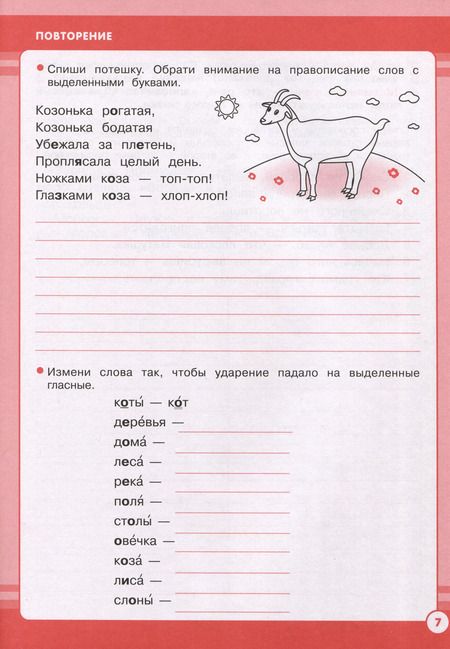 ПОВТОРЕНИЕ
• Спиши потешку. Обрати внимание на правописание слов с
выделенными буквами.
Козонька рогатая,
Козонька бодатая
Убежала за плетень,
Проплясала целый день.
Ножками коза — топ-топ!
Глазками коза — хлоп-хлоп!
• Измени слова так, чтобы ударение падало на выделенные
гласные.
коты́ — ко́т
дере́вья —
дома́ —
леса́ —
река́ —
поля́ —
столы́ —
ове́чка —
коза́ —
лиса́ —
слоны́ —
7